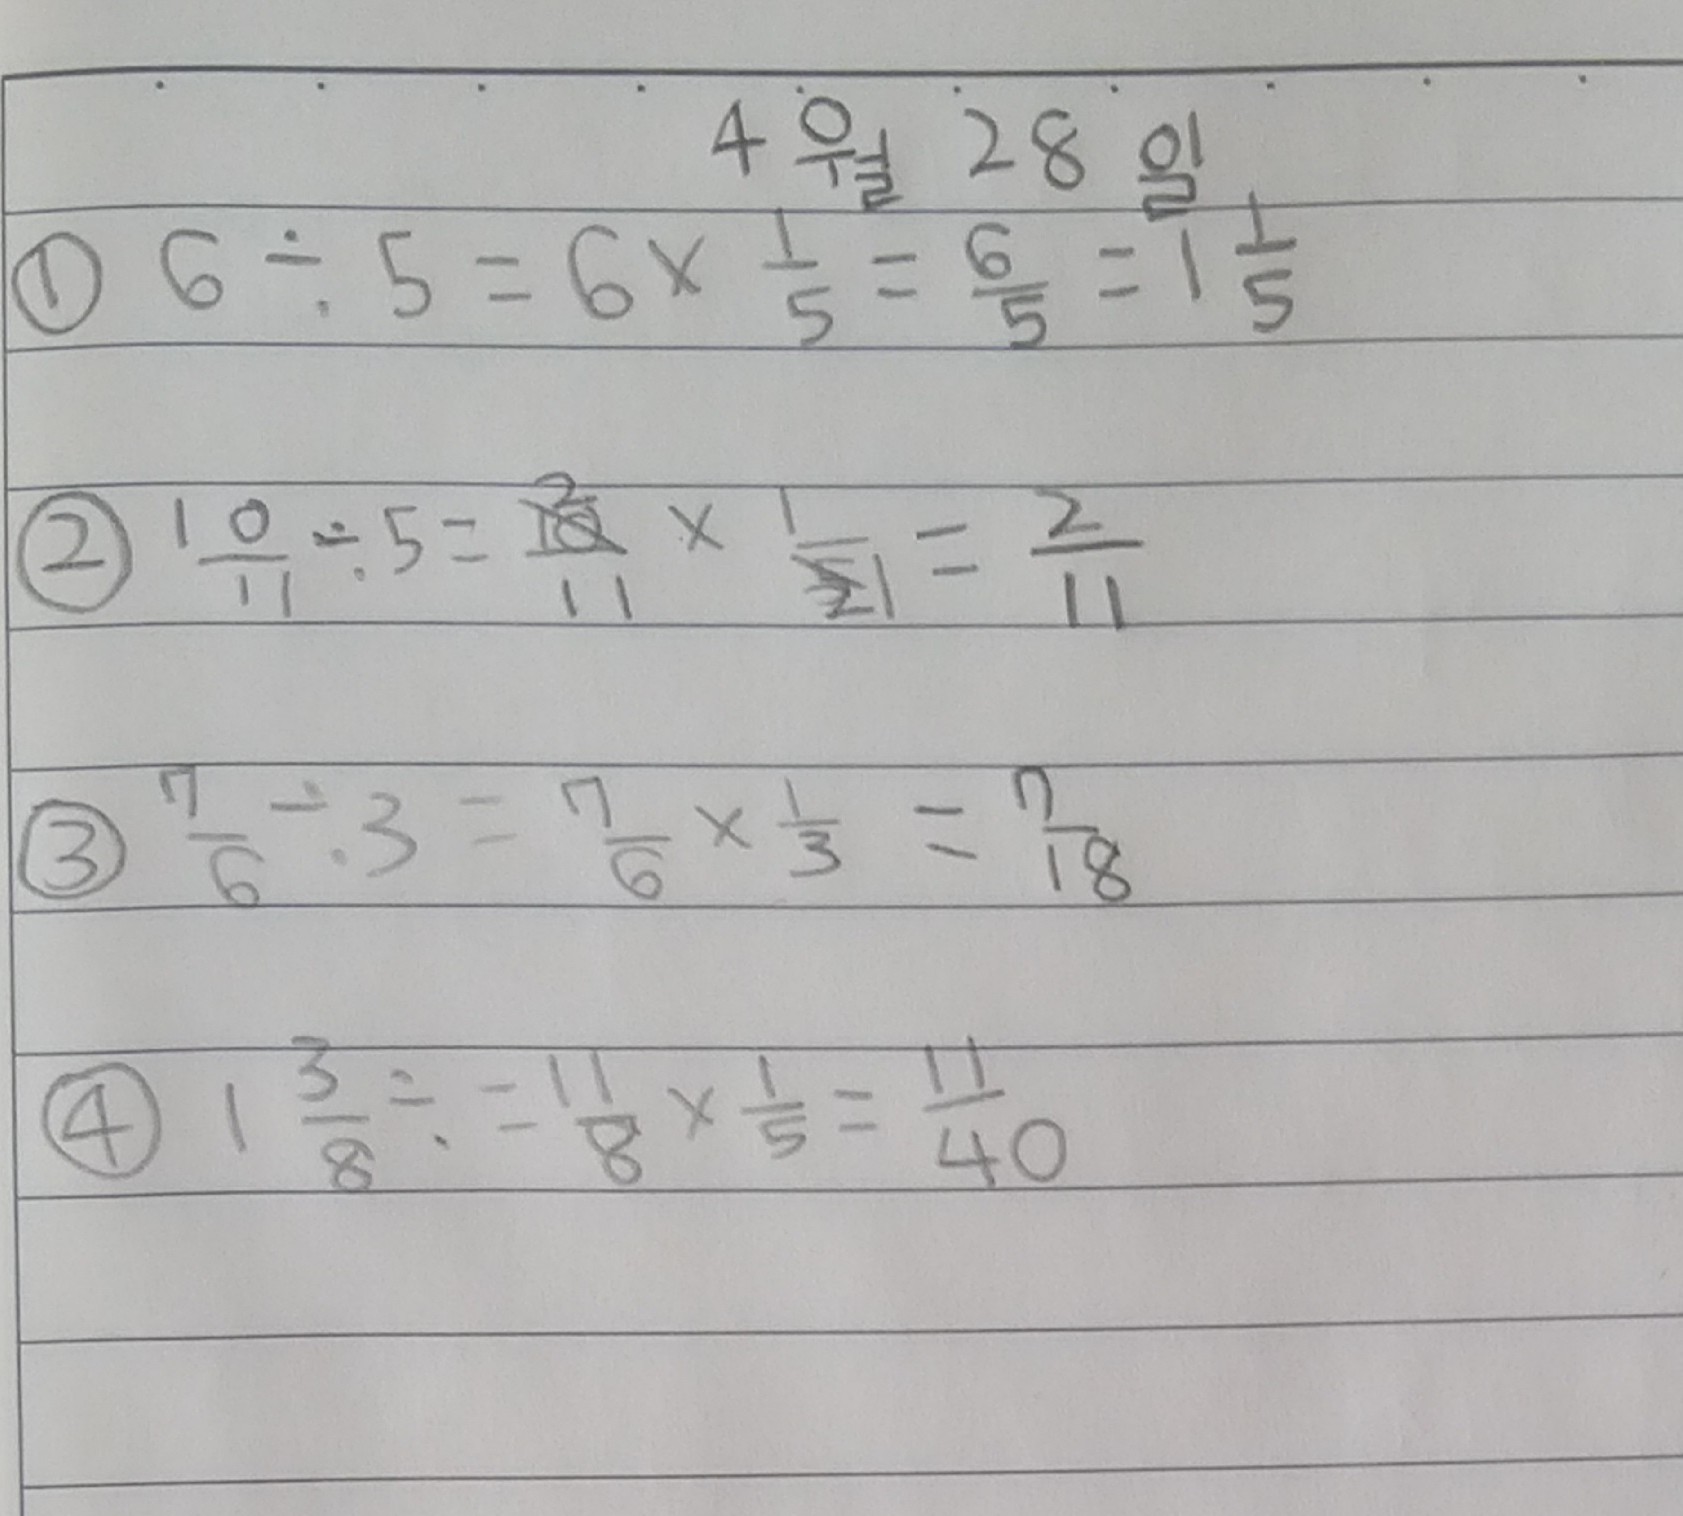 4월 28일
① 6 ÷ 5 = 6 × 1/5 = 6/5 = 1 1/5
② 10/11 ÷ 5 = 10/11 2 × 1/5 1 = 2/11
③ 7/6 ÷ 3 = 7/6 × 1/3 = 7/18
④ 1 3/8 ÷ = 11/8 × 1/5 = 11/40